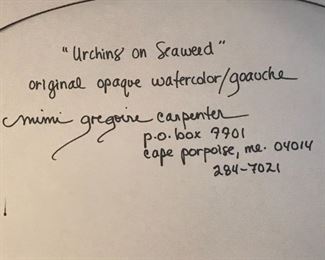 "Urchins on Seaweed"
original opaque watercolor/goauche
mimi gregoire carpenter
p.o. box 9901
cape porpoise, me. 04014
284-7021